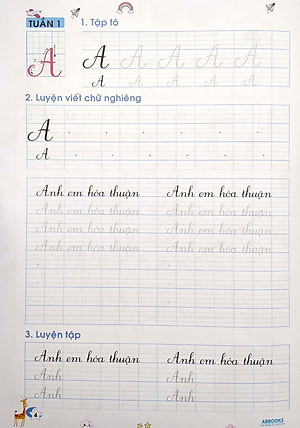 TUẦN 1
1. Tập tô
A
A A A A A
A A A A A
2. Luyện viết chữ nghiêng
A
A
Anh em hòa thuận Anh em hòa thuận
Anh em hòa thuận Anh em hòa thuận
Anh em hòa thuận Anh em hòa thuận
Anh em hòa thuận Anh em hòa thuận
3. Luyện tập
Anh em hòa thuận Anh em hòa thuận
Anh Anh
Anh Anh
ABBOOKS